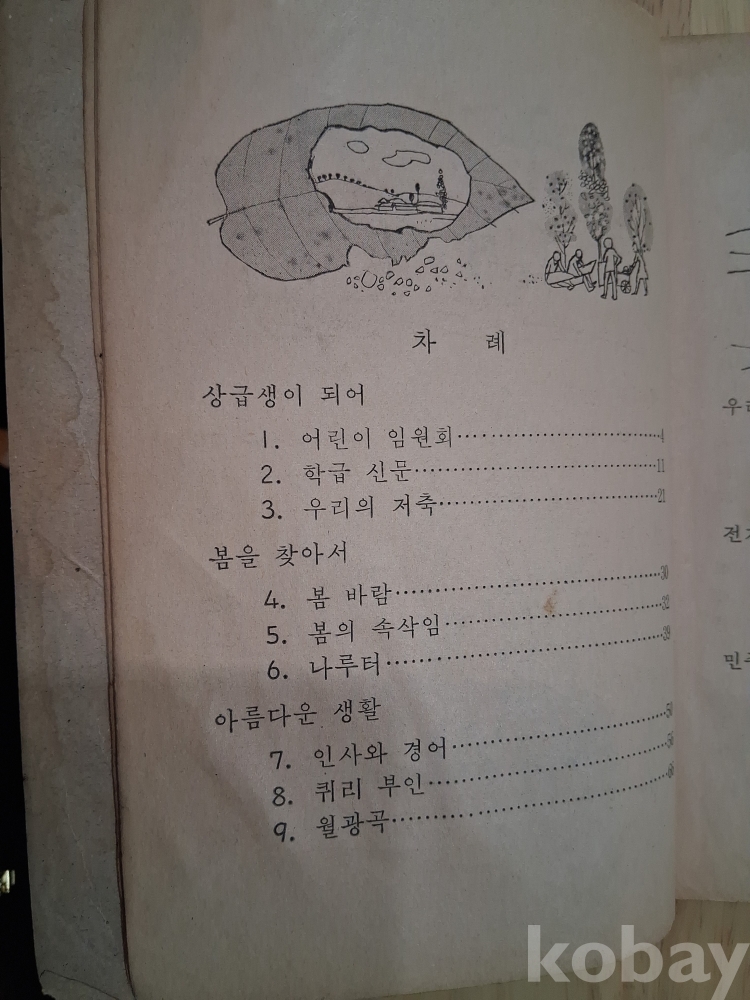 차 례
상급생이 되어
1. 어린이 임원회 4
2. 학급 신문 11
3. 우리의 저축 21
봄을 찾아서
4. 봄 바람 30
5. 봄의 속삭임 32
6. 나루터 39
아름다운 생활
7. 인사와 경어 50
8. 퀴리 부인
9. 월광곡
우리
전기
민주
kobay